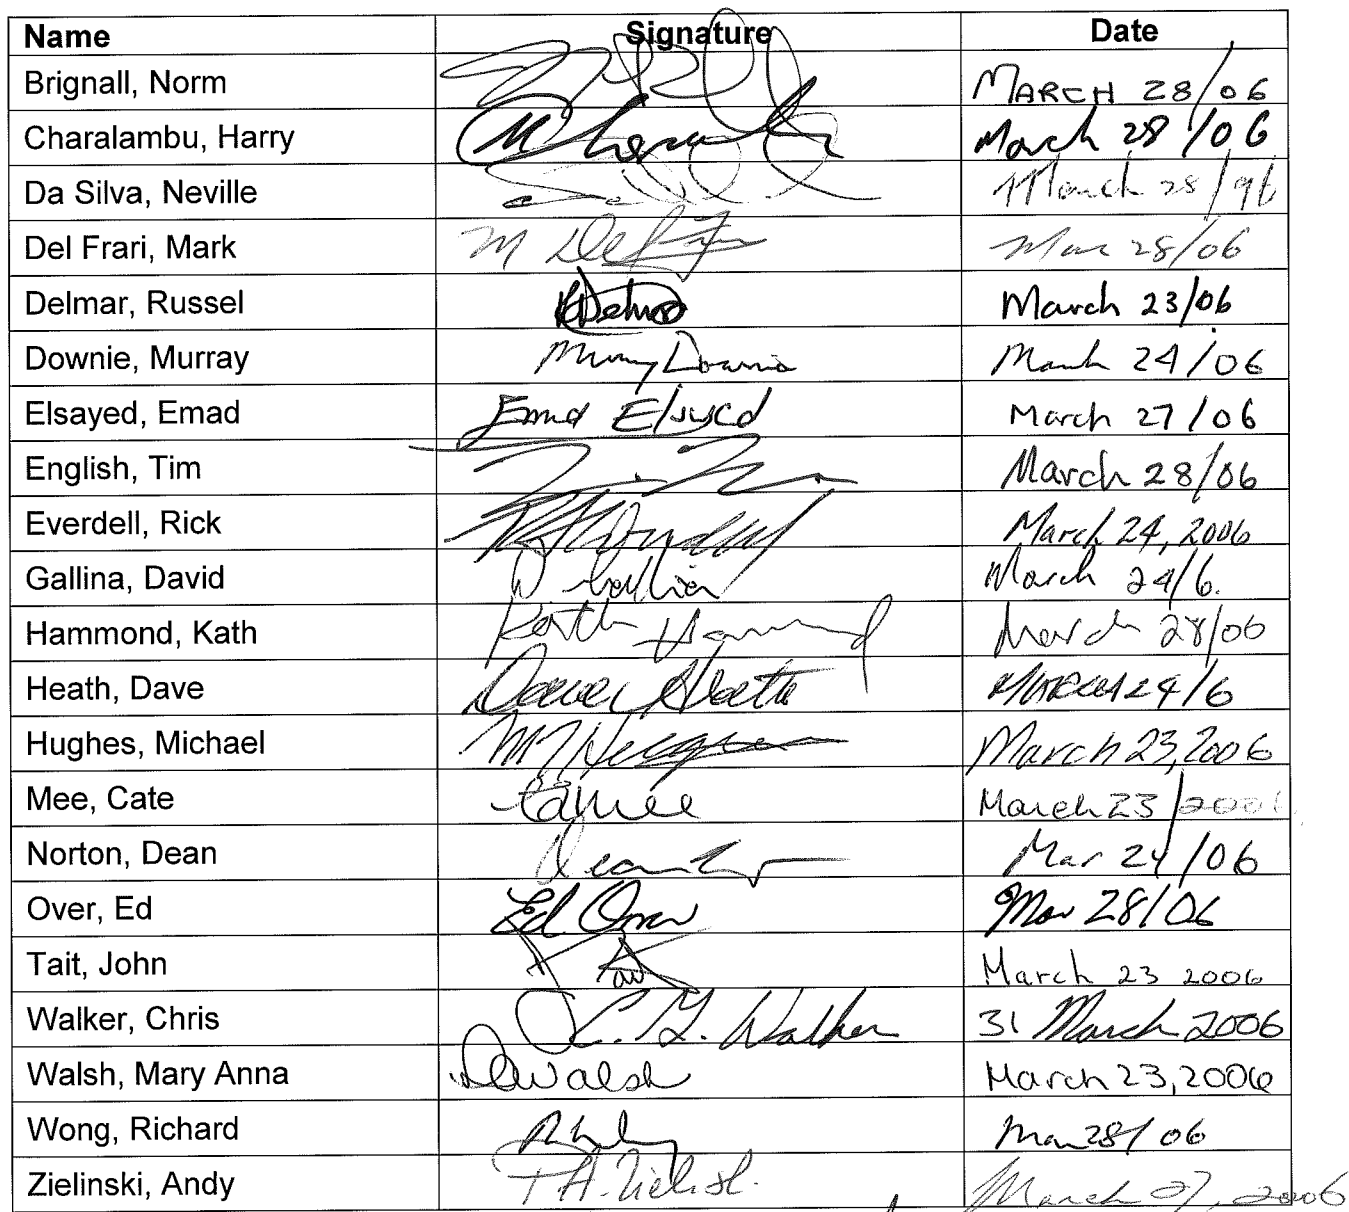 Name Signature Date
Brignall, Norm MARCH 28/06
Charalambu, Harry March 28/06
Da Silva, Neville March 28/96
Del Frari, Mark M Del Mar 28/06
Delmar, Russel March 23/06
Downie, Murray Murray Downie March 24/06
Elsayed, Emad Emad Elsayed March 27/06
English, Tim March 28/06
Everdell, Rick March 24, 2006
Gallina, David D March 24/6.
Hammond, Kath Kath Hammond March 28/06
Heath, Dave Dave Heath MARCH 24/6
Hughes, Michael March 23, 2006
Mee, Cate CAMee March 23/2006
Norton, Dean Dean Mar 24/06
Over, Ed Ed Over Mar 28/06
Tait, John March 23 2006
Walker, Chris C. G. Walker 31 March 2006
Walsh, Mary Anna Walsh March 23, 2006
Wong, Richard Mar 28/06
Zielinski, Andy March 27, 2006